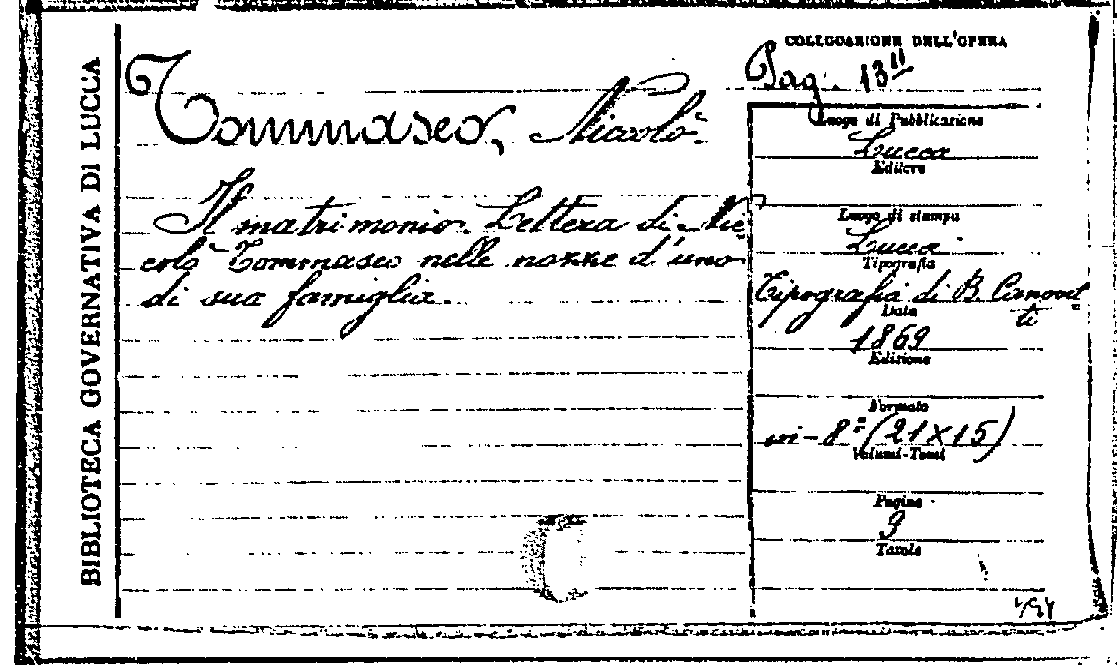 BIBLIOTECA GOVERNATIVA DI LUCCA
Tommaseo, Niccolò
Il matrimonio. Lettera di Nic=
colò Tommaseo nelle nozze d'uno
di sua famiglia.
COLLOCAZIONE DELL'OPERA
Pag. 13
Luogo di Pubblicazione
Lucca
Editore
Luogo di stampa
Lucca
Tipografia
Tipografia di B. Canovet=
ti
Data
1869
Edizione
Formato
in-8° (21×15)
Volumi-Tomi
Pagine
9
Tavole